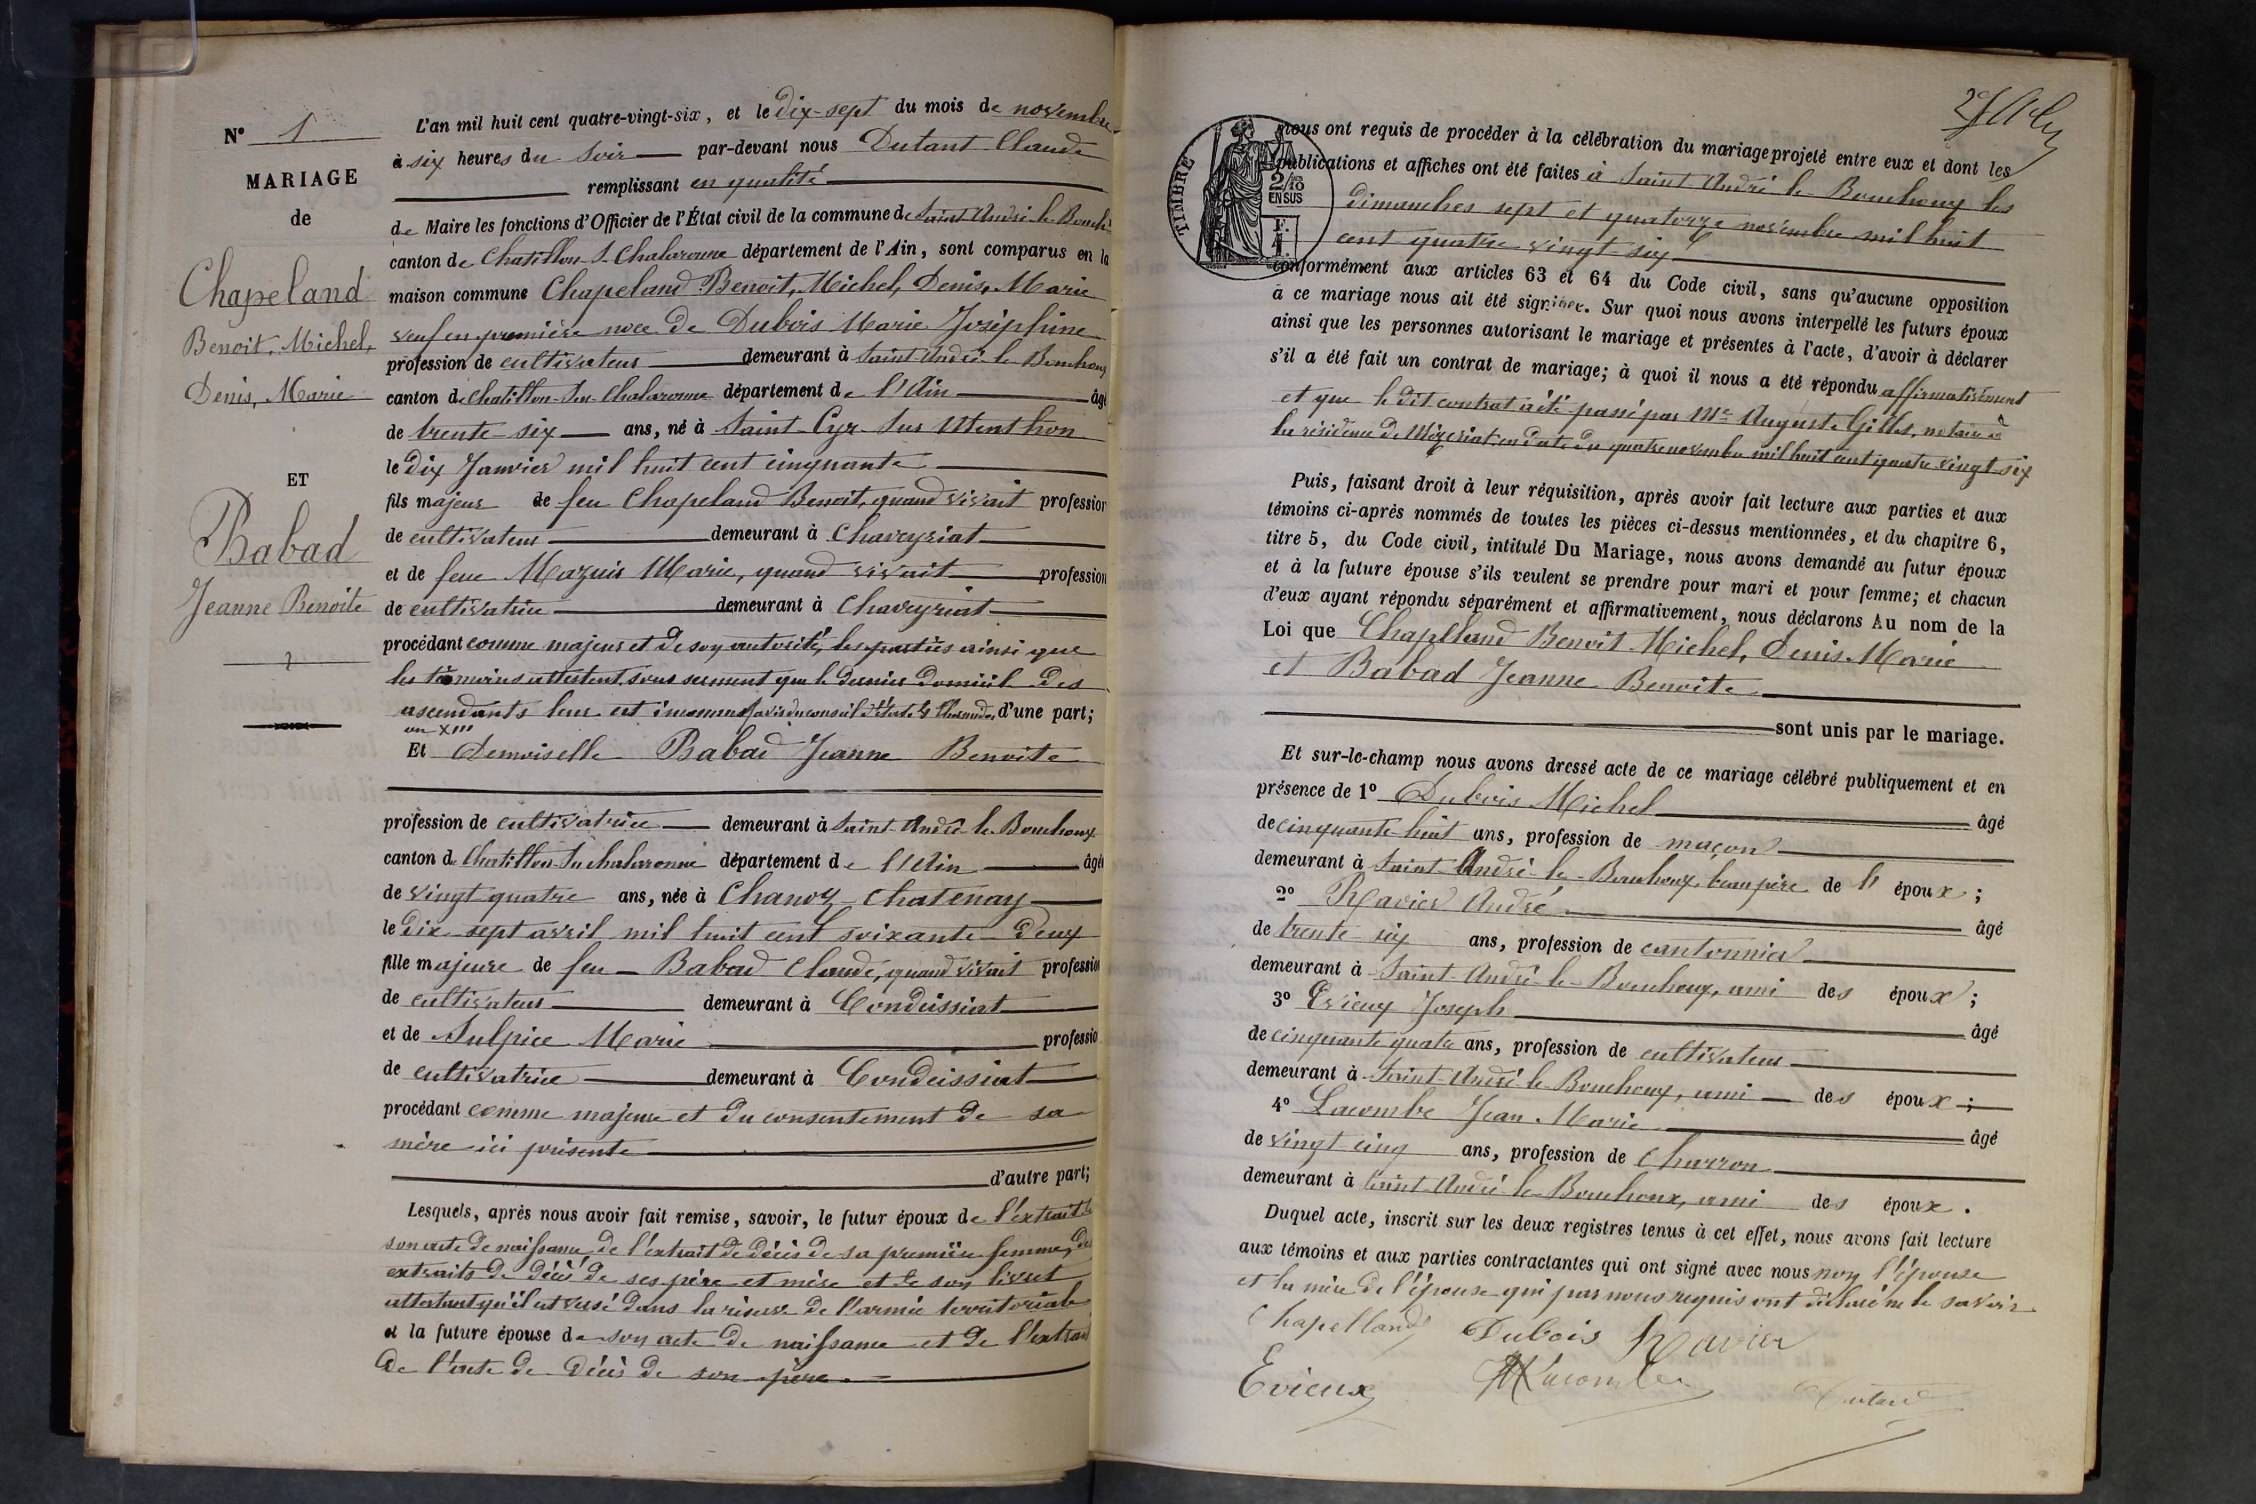 N° 1
MARIAGE
de
Chapeland
Benoit, Michel,
Denis, Marie
ET
Babad
Jeanne Benoite
L'an mil huit cent quatre-vingt-six, et le Dix-sept du mois de novembre
à six heures du soir par-devant nous Dutant Claude
remplissant en qualité
de Maire les fonctions d'Officier de l'État civil de la commune de Saint André le Bouch
canton de Chatillon S. Chalaronne département de l'Ain, sont comparus en la
maison commune Chapeland Benoit, Michel, Denis, Marie
veuf en première noce de Dubois Marie Joséphine
profession de cultivateur demeurant à Saint André le Bouchoux
canton de Chatillon-Sur-Chalaronne département de l'Ain âgé
de trente-six ans, né à Saint-Cyr-Sur Menthon
le dix Janvier mil huit cent cinquante
fils majeur de feu Chapeland Benoit, quand vivait profession
de cultivateur demeurant à Chaveyriat
et de feue Mazuir Marie, quand vivait profession
de cultivatrice demeurant à Chaveyriat
procédant comme majeur et de son autorité, les parties ainsi que
les témoins attestent sous serment que le dernier domicil des
ascendants leur est inconnu (avis du conseil d'état le 4 thermidor d'une part;
an XIII
Et Demoiselle Babad Jeanne Benoite
profession de cultivatrice demeurant à Saint-André-le-Bouchoux
canton de Chatillon-Sur chalaronne département de l'Ain âgée
de vingt quatre ans, née à Chanoz-Chatenay
le dix-sept avril mil huit cent soixante-deux
fille majeure de feu Babad Claude, quand vivait profession
de cultivateur demeurant à Condeissiat
et de Sulpice Marie professio
de cultivatrice demeurant à Condeissiat
procédant comme majeure et du consentement de sa
mère ici présente
d'autre part;
Lesquels, après nous avoir fait remise, savoir, le futur époux de l'extrait de
son acte de naissance, de l'extrait de décès de sa première femme, des
extraits de décès de ses père et mère et de son livret
attestant qu'il est versé dans la réserve de l'armée territoriale
et la future épouse de son acte de naissance et de l'extrait
de l'acte de décès de son père.
nous ont requis de procéder à la célébration du mariage projeté entre eux et dont les
publications et affiches ont été faites à Saint André le Bouchoux les
dimanches sept et quatorze novembre mil huit
cent quatre vingt six
TIMBRE
2/10
EN SUS
conformément aux articles 63 et 64 du Code civil, sans qu'aucune opposition
à ce mariage nous ait été signifiée. Sur quoi nous avons interpellé les futurs époux
ainsi que les personnes autorisant le mariage et présentes à l'acte, d'avoir à déclarer
s'il a été fait un contrat de mariage; à quoi il nous a été répondu affirmativement
et que le dit contrat a été passé par Me Auguste Gilles, notaire à
la résidence de Mézériat en date du quatre novembre mil huit cent quatre vingt six
Puis, faisant droit à leur réquisition, après avoir fait lecture aux parties et aux
témoins ci-après nommés de toutes les pièces ci-dessus mentionnées, et du chapitre 6,
titre 5, du Code civil, intitulé Du Mariage, nous avons demandé au futur époux
et à la future épouse s'ils veulent se prendre pour mari et pour femme; et chacun
d'eux ayant répondu séparément et affirmativement, nous déclarons Au nom de la
Loi que Chapelland Benoit Michel, Denis Marie
et Babad Jeanne Benoite
sont unis par le mariage.
Et sur-le-champ nous avons dressé acte de ce mariage célébré publiquement et en
présence de 1° Dubois Michel âgé
de cinquante huit ans, profession de maçon
demeurant à Saint André-le-Bouchoux, beau père de l' époux;
2° Ravier André âgé
de trente-six ans, profession de cantonnier
demeurant à Saint-André-le-Bouchoux, ami des époux;
3° Evieux Joseph âgé
de cinquante quatre ans, profession de cultivateur
demeurant à Saint André le Bouchoux, ami des époux;
4° Lacombe Jean Marie âgé
de vingt cinq ans, profession de Charron
demeurant à Saint André le Bouchoux, ami des époux.
Duquel acte, inscrit sur les deux registres tenus à cet effet, nous avons fait lecture
aux témoins et aux parties contractantes qui ont signé avec nous non l'épouse
et la mère de l'épouse qui par nous requis ont déclaré ne le savoir.
Chapelland Dubois Ravier
Evieux Lacombe Dutant